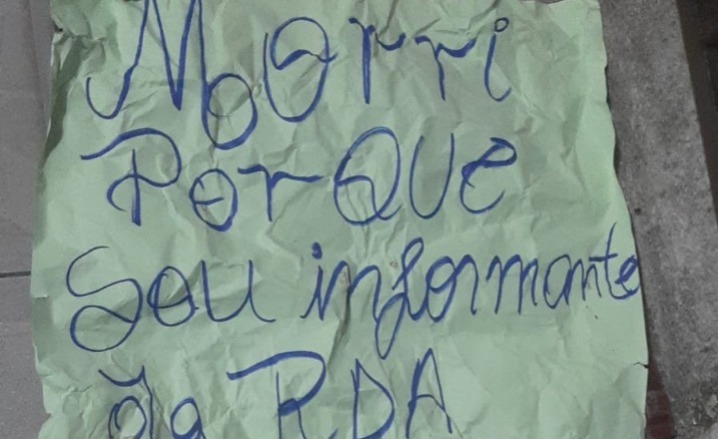 Morri
PorQUe
Sou informante
da RDA